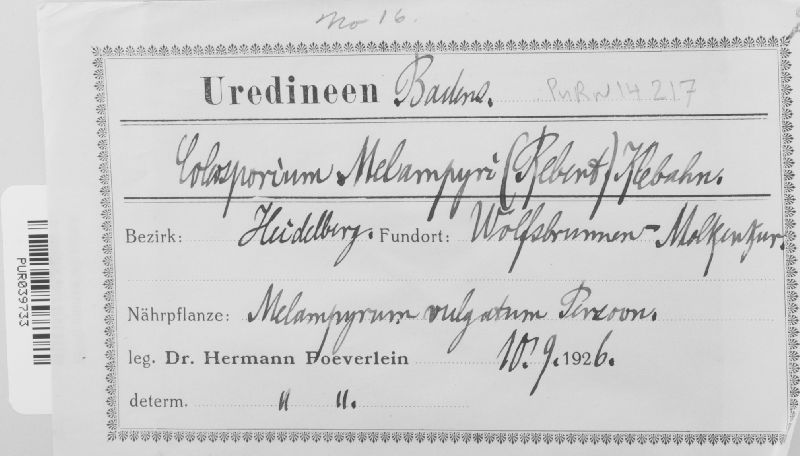 No 16.
Uredineen Badens. PURN14217
Coleosporium Melampyri (Rebent.) Klebahn.
Bezirk: Heidelberg. Fundort: Wolfsbrunnen - Molkenkur.
Nährpflanze: Melampyrum vulgatum Persoon.
leg. Dr. Hermann Poeverlein 10. 9. 1926.
determ. " ".
PUR039733